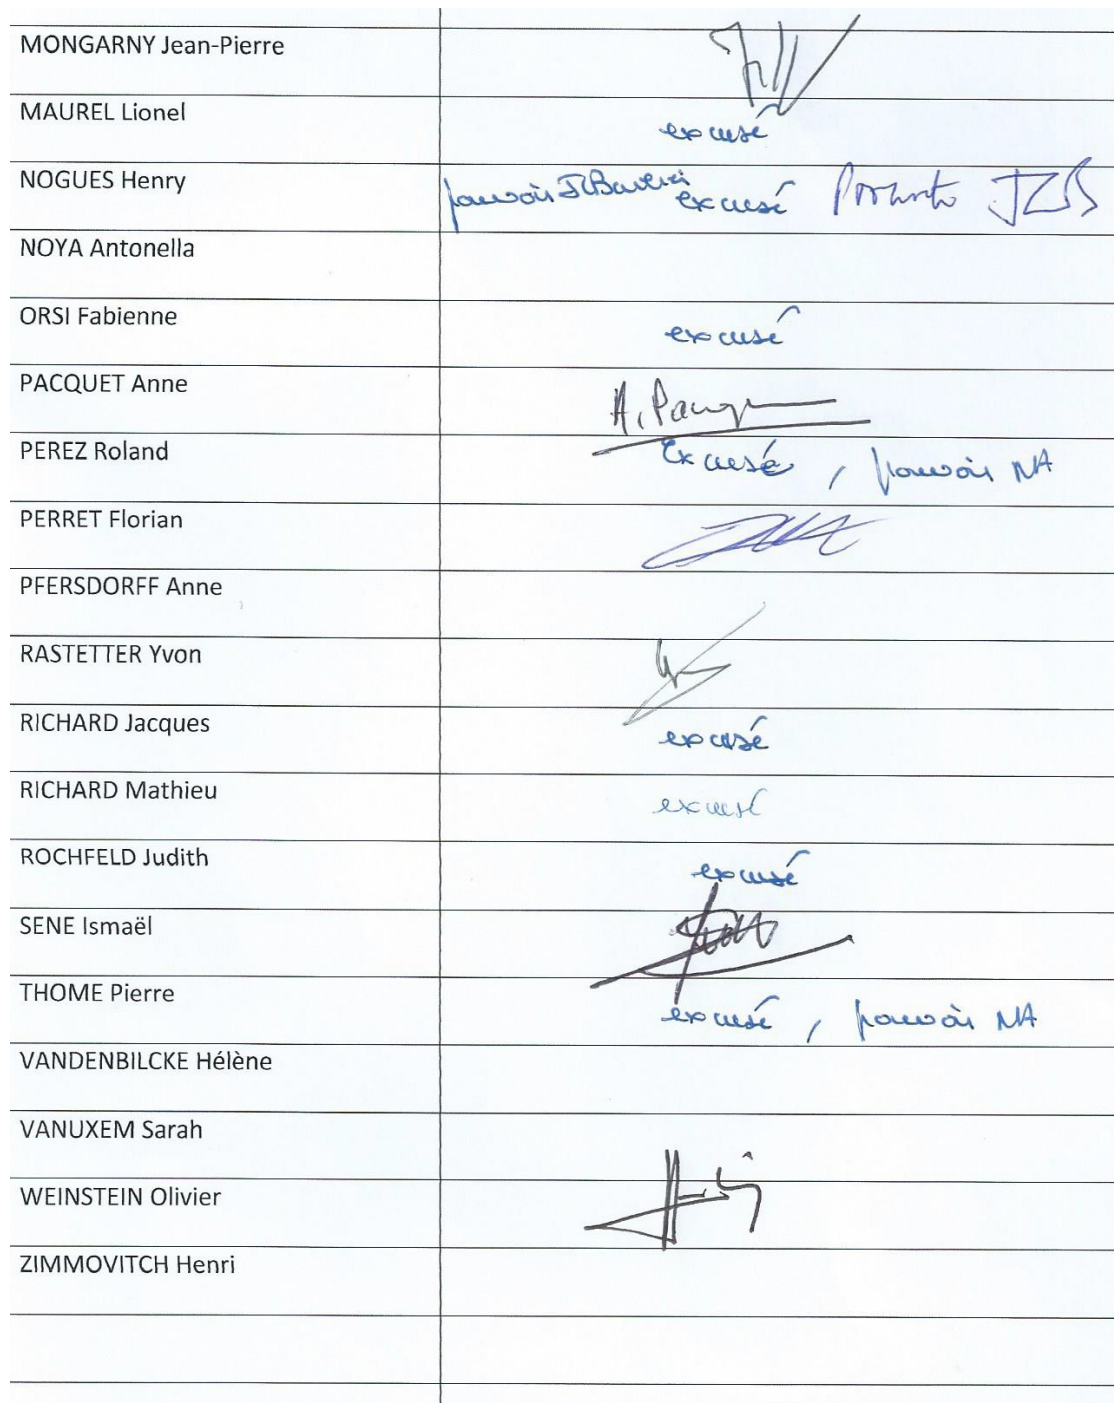 MONGARNY Jean-Pierre
MAUREL Lionel excusé
NOGUES Henry pouvoir excusé JLB
NOYA Antonella
ORSI Fabienne excusé
PACQUET Anne A. Pacq
PEREZ Roland Excusé, pouvoir NA
PERRET Florian
PFERSDORFF Anne
RASTETTER Yvon
RICHARD Jacques excusé
RICHARD Mathieu excusé
ROCHFELD Judith excusé
SENE Ismaël
THOME Pierre excusé, pouvoir NA
VANDENBILCKE Hélène
VANUXEM Sarah
WEINSTEIN Olivier
ZIMMOVITCH Henri